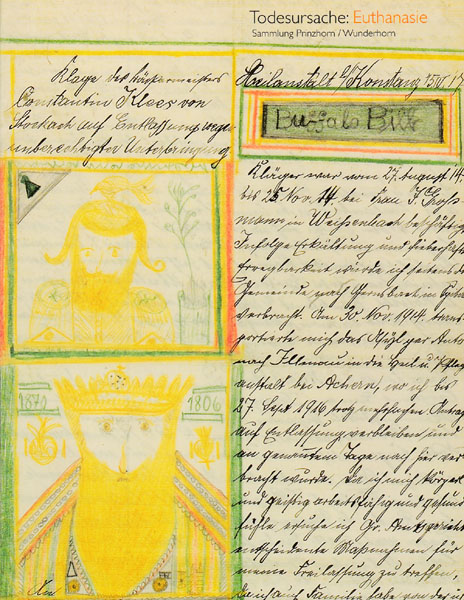 Todesursache: Euthanasie
Sammlung Prinzhorn / Wunderhorn
Klage des Küfermeisters
Constantin Klees von
Stockach auf Entlassung wegen
unberechtigter Unterbringung
Heilanstalt b/Konstanz
Buffalo Bill
1872
1806
Kläger war vom 27. August 14.
bis 25. Nov. 14. bei Frau J. Groß-
mann in Weissenbach beschäftigt
Infolge Erkältung und fieberhafter
Erregbarkeit wurde ich seitens der
Gemeinde nach Gernsbach in Spital
verbracht. Am 30. Nov. 1914 trans-
portierte mich das Asyl per Auto
nach Illenau in die Heil u. Pfleg
anstalt bei Achern, wo ich bis
27. Sept 1916 trotz mehrfachen Antrag
auf Entlassung verbleiben und
an genanntem Tage nach hier ver
bracht wurde. Da ich mich körperl
und geistig arbeitsfähig und gesund
fühle ersuche ich Gr. Amtsgericht
entscheidende Maßnahmen für
meine Freilassung zu treffen,
An